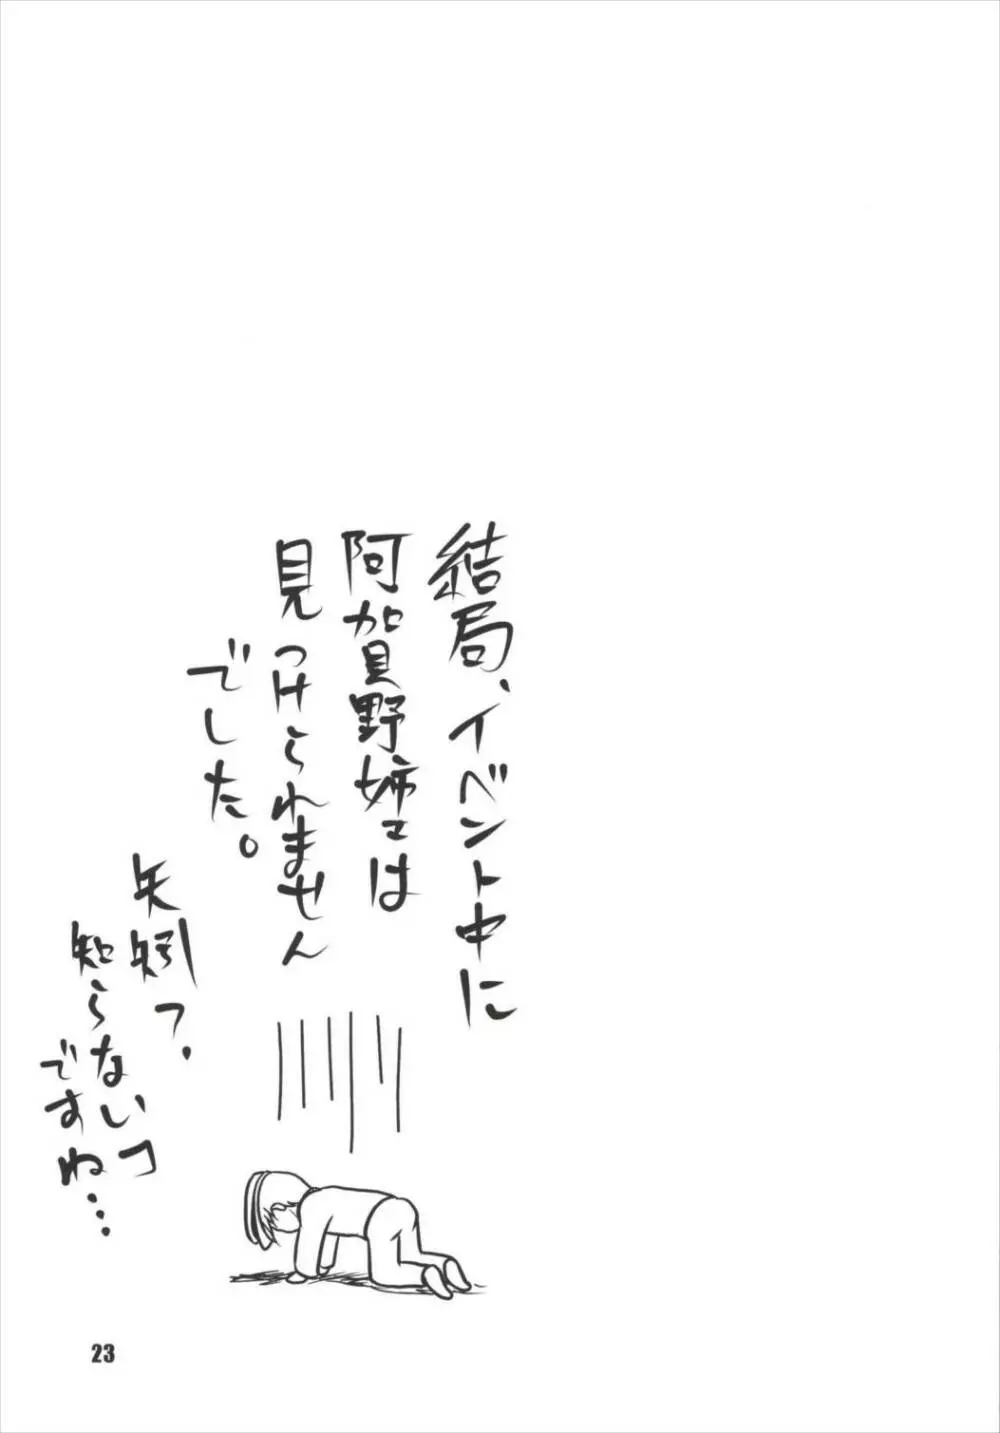 結局、イベント中に
阿賀野姉は
見つけられません
でした。
矢矧?
知らない
ですね…
23